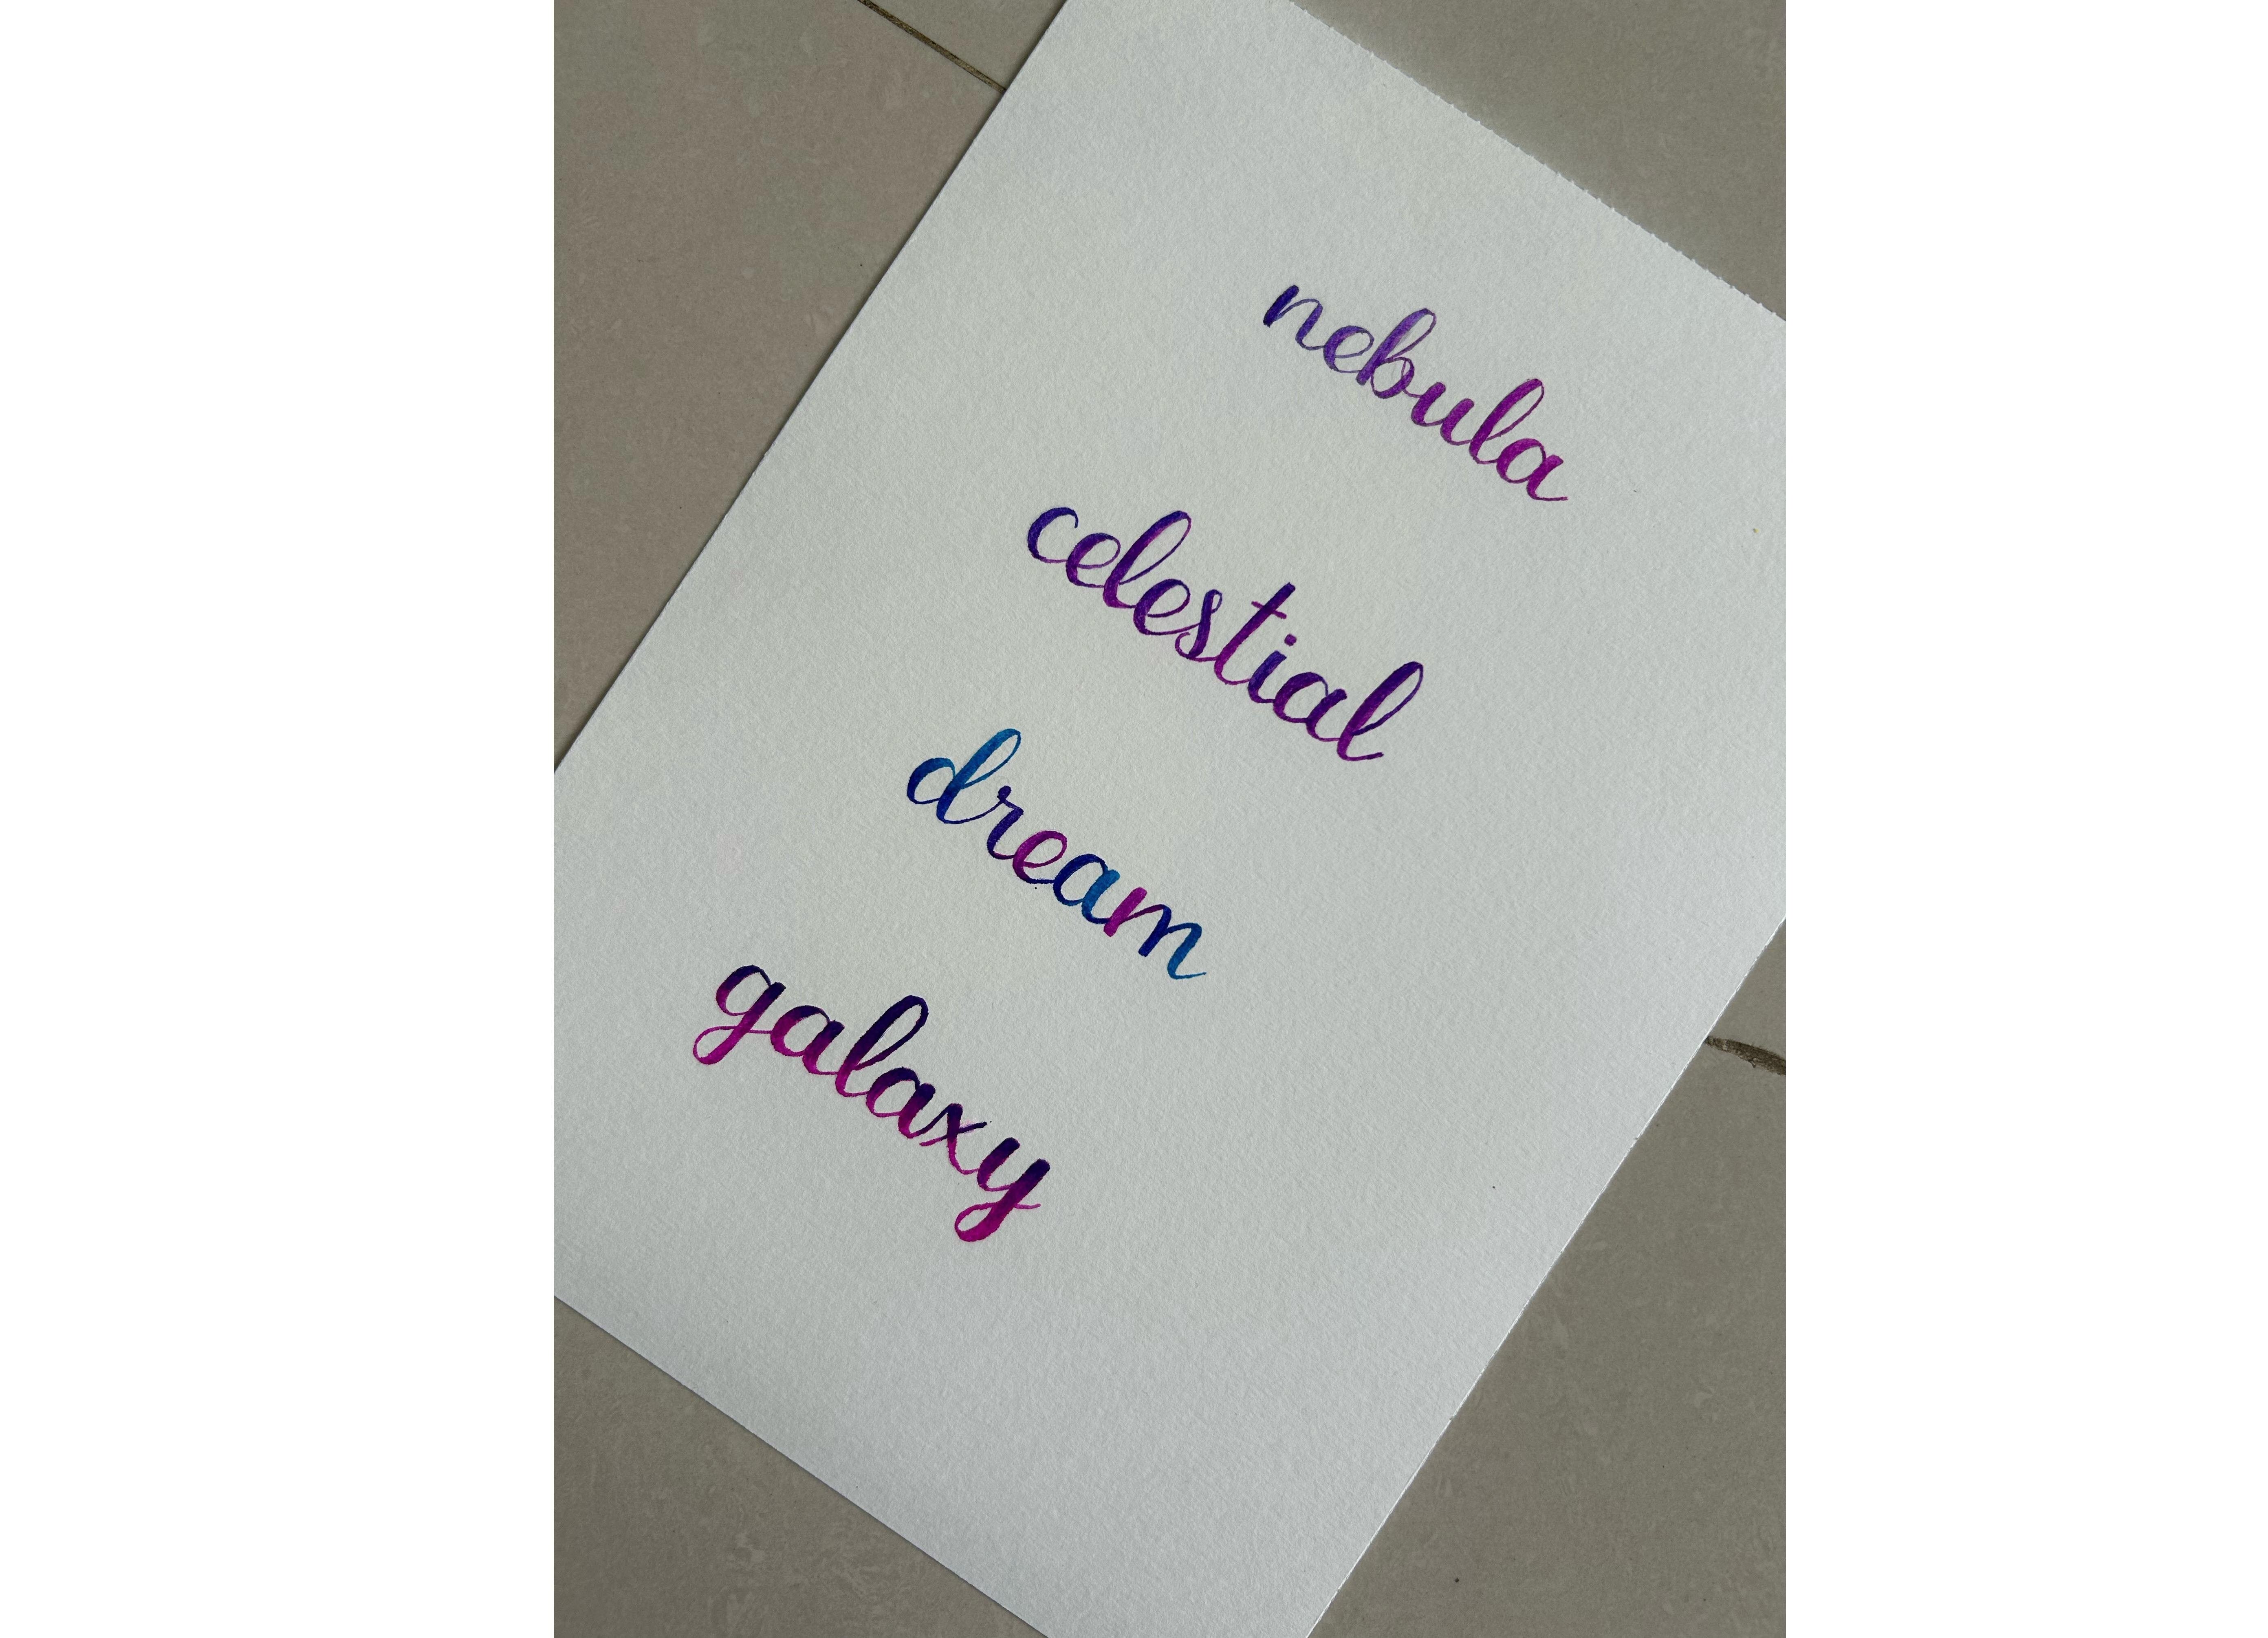 nebula
celestial
dream
galaxy